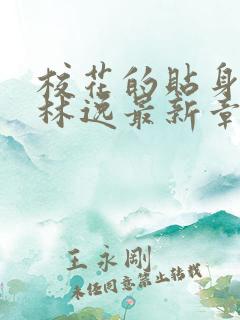 校花的贴身
林逸最新章
王永刚
未经同意禁止转载